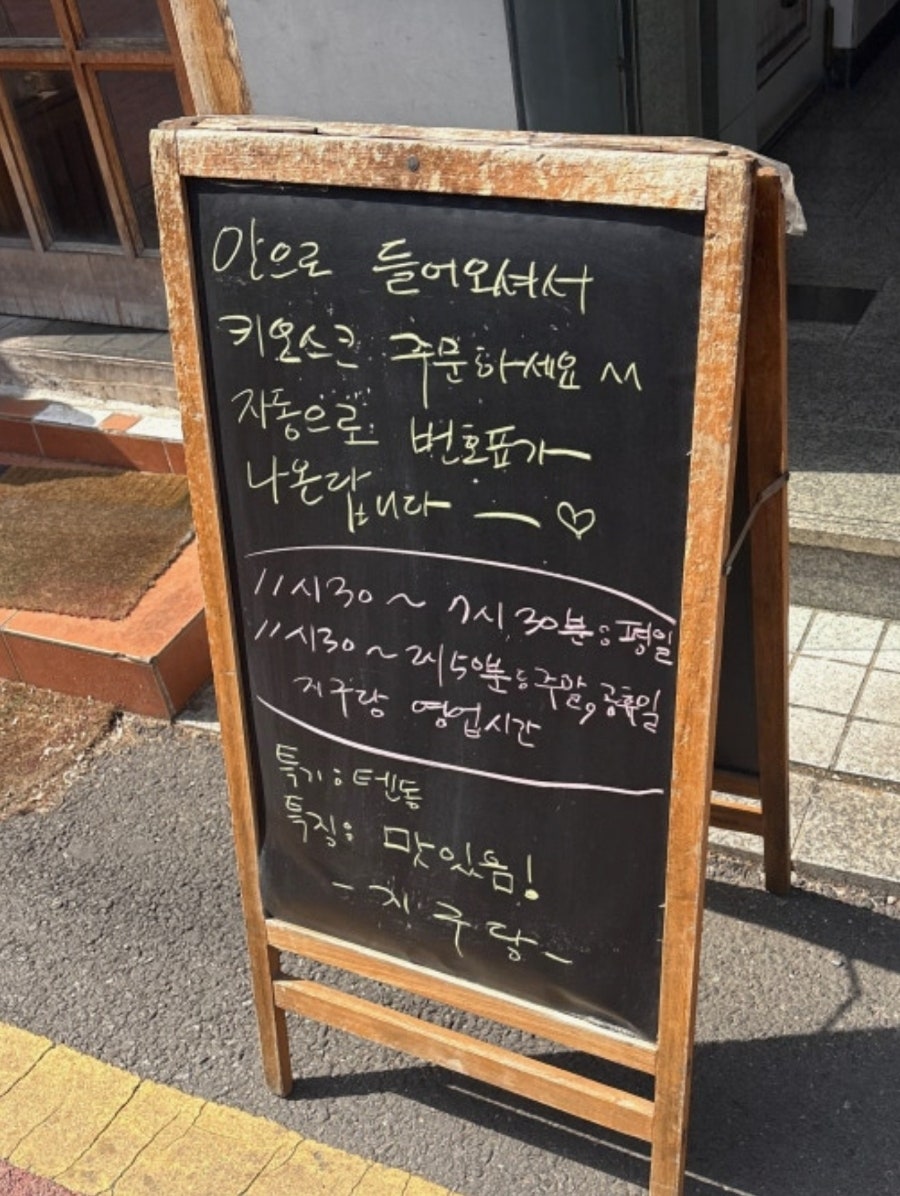 안으로 들어오셔서
키오스크 주문하세요 ^^
자동으로 번호표가
나온답니다 ㅡ ♡
11시30 ~ 7시 30분 : 평일
11시30 ~ 2시50분 : 주말, 공휴일
지구당 영업시간
특기 : 텐동
특징 : 맛있음!
- 지구당 -